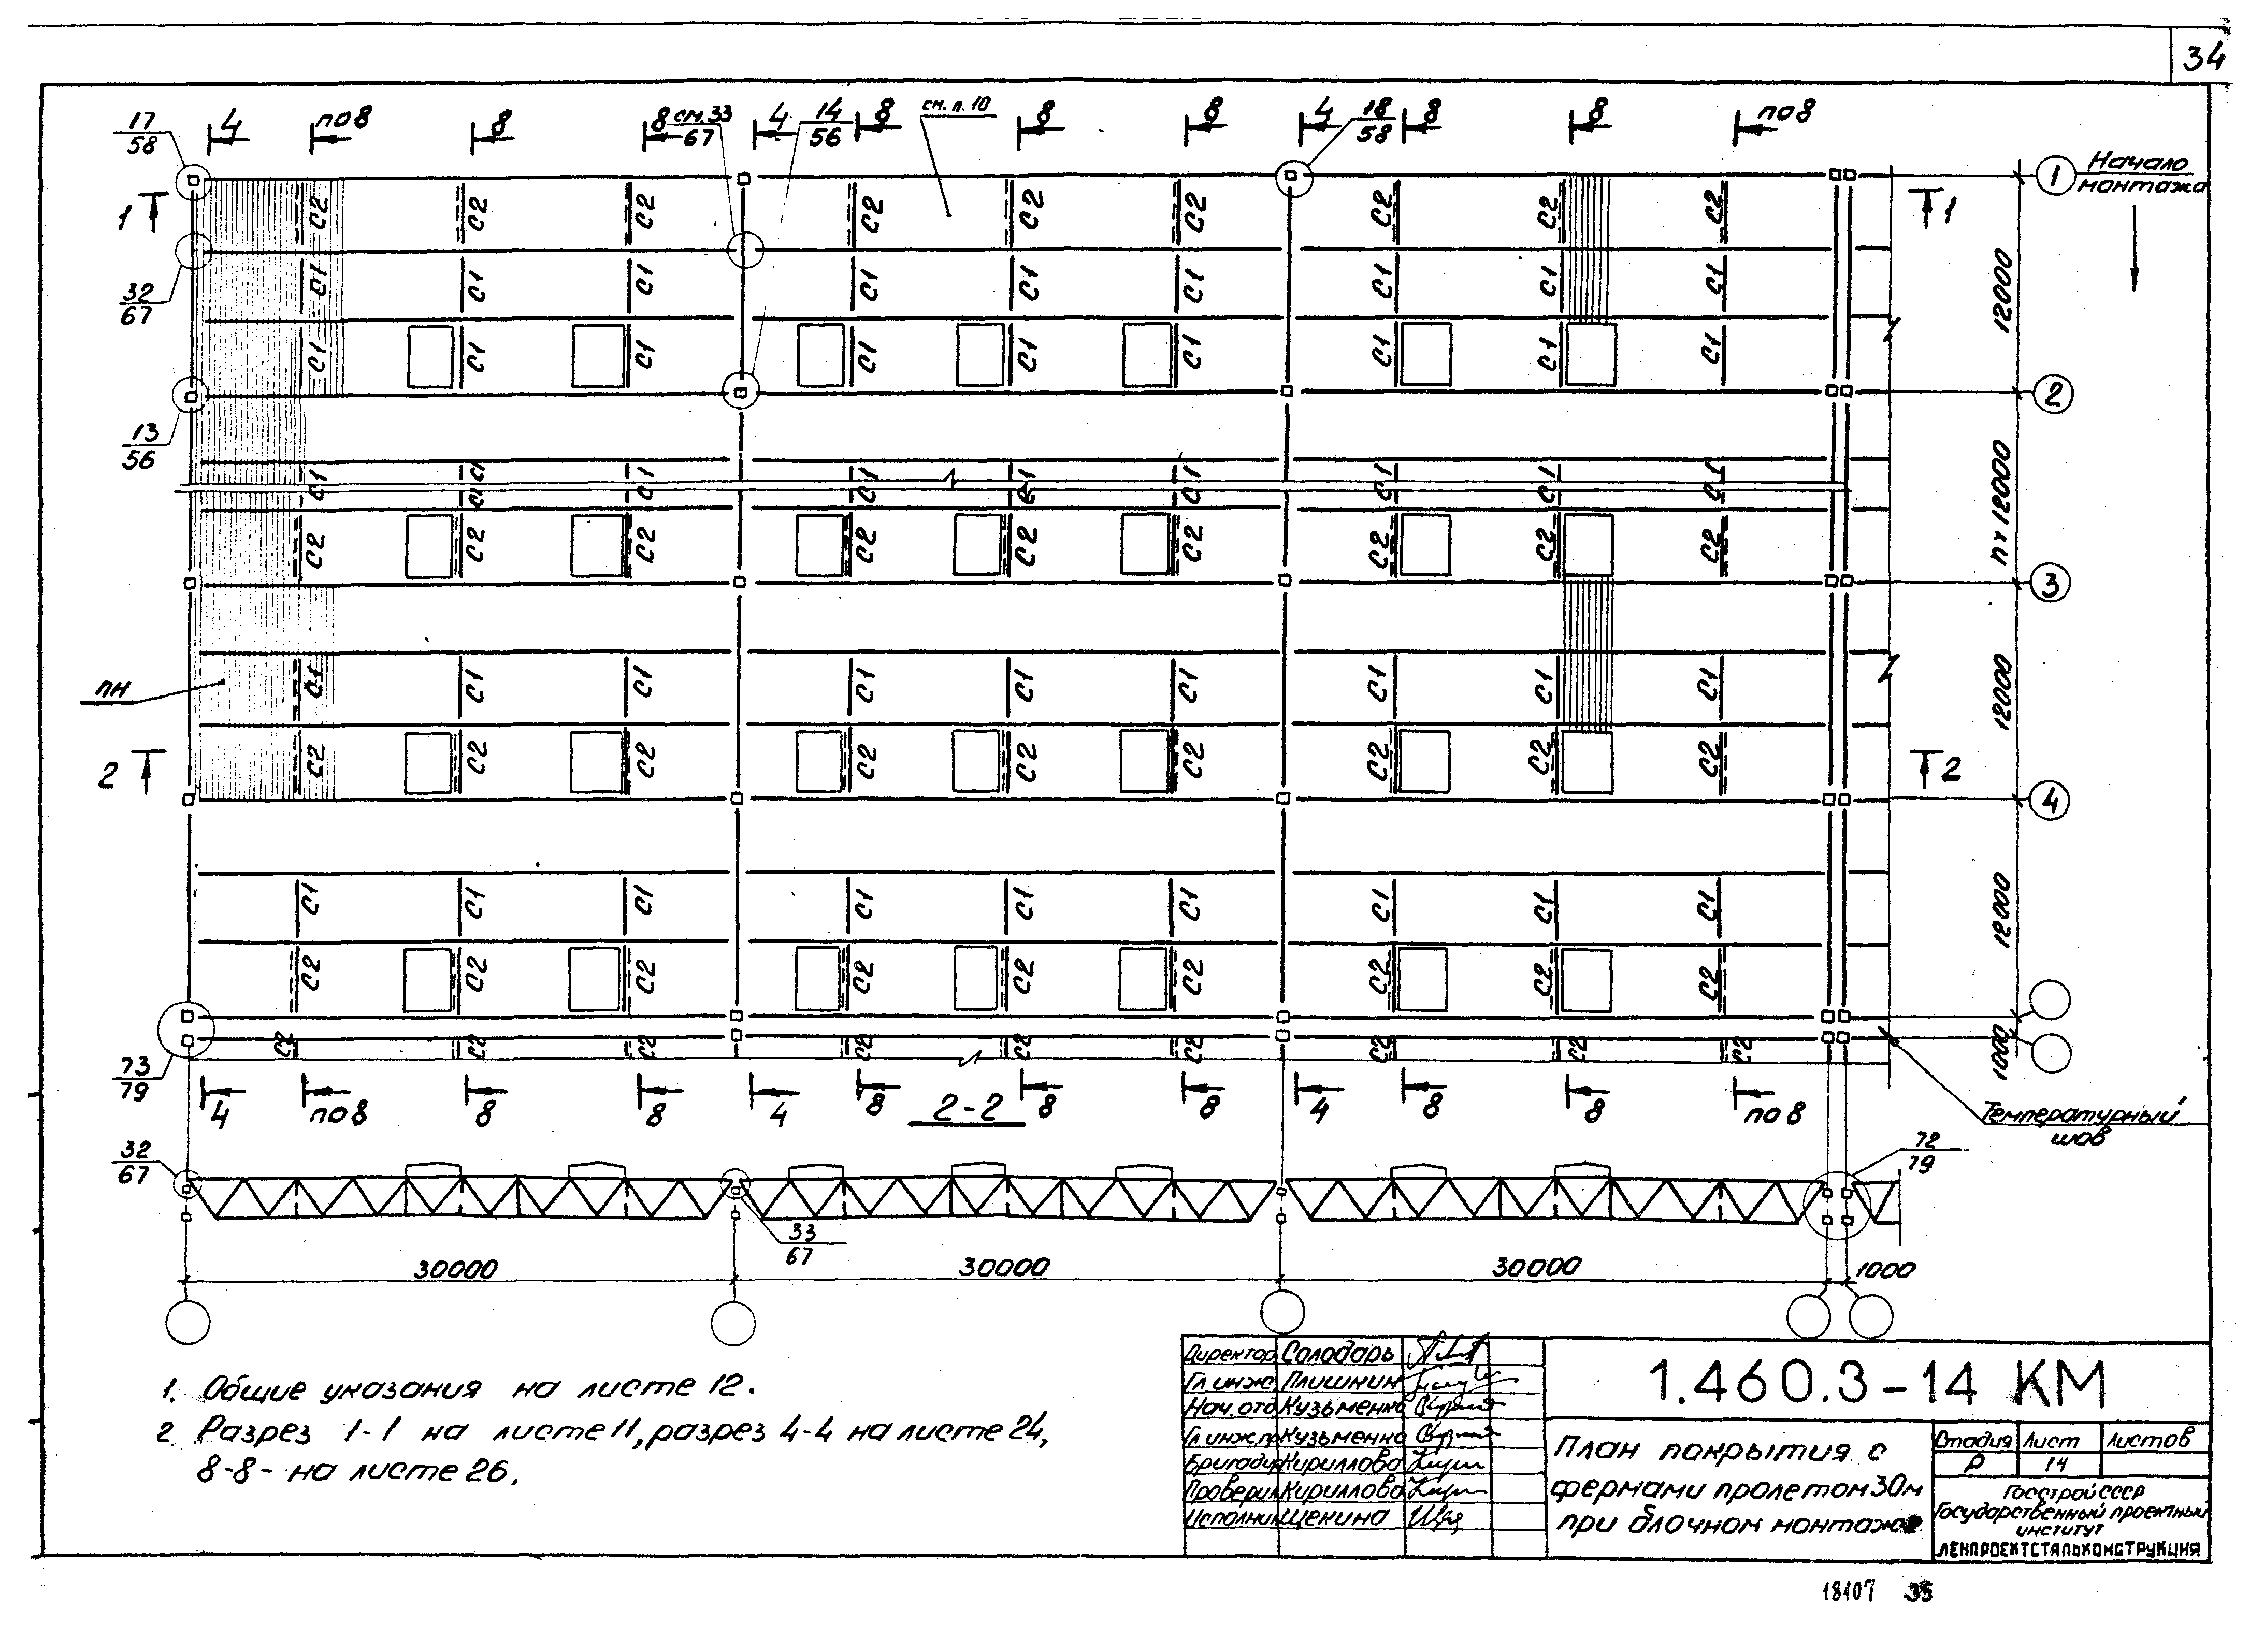 34
17
58
4
по 8
8
8
см.33
67
4
14
56
8
см. п. 10
8
8
4
18
58
8
8
по 8
1
Начало
монтажа
1
1
С2 С2 С2 С2 С2 С2 С2 С2 С2
32
67
С1 С1 С1 С1 С1 С1 С1 С1 С1
12000
С1 С1 С1 С1 С1 С1 С1 С1 С1
2
13
56
С1 С1 С1 С1 С1 С1 С1 С1 С1 С1
n x 12000
С2 С2 С2 С2 С2 С2 С2 С2 С2
3
пн
С1 С1 С1 С1 С1 С1 С1 С1 С1
12000
2
С2 С2 С2 С2 С2 С2 С2 С2 С2
2
4
С1 С1 С1 С1 С1 С1 С1 С1 С1
12000
С2 С2 С2 С2 С2 С2 С2 С2 С2
С2 С2 С2 С2 С2 С2 С2 С2 С2
1000
73
79
4
по 8
8
8
4
8
2-2
8
8
4
8
8
по 8
Температурный
шов
32
67
72
79
33
67
30000
30000
30000
1000
1. Общие указания на листе 12.
2 Разрез 1-1 на листе 11, разрез 4-4 на листе 24,
8-8- на листе 26.
Директор Солодарь
Гл инж. Плишкин
Нач. отд Кузьменко
Гл.инж.пр Кузьменко
Бригадир Кириллова
Проверил Кириллова
Исполнил Щекина
1.460.3-14 КМ
План покрытия с
фермами пролетом 30м
при блочном монтаже
Стадия Лист Листов
Р 14
Госстрой СССР
Государственный проектный
институт
ЛЕНПРОЕКТСТАЛЬКОНСТРУКЦИЯ
18107 35